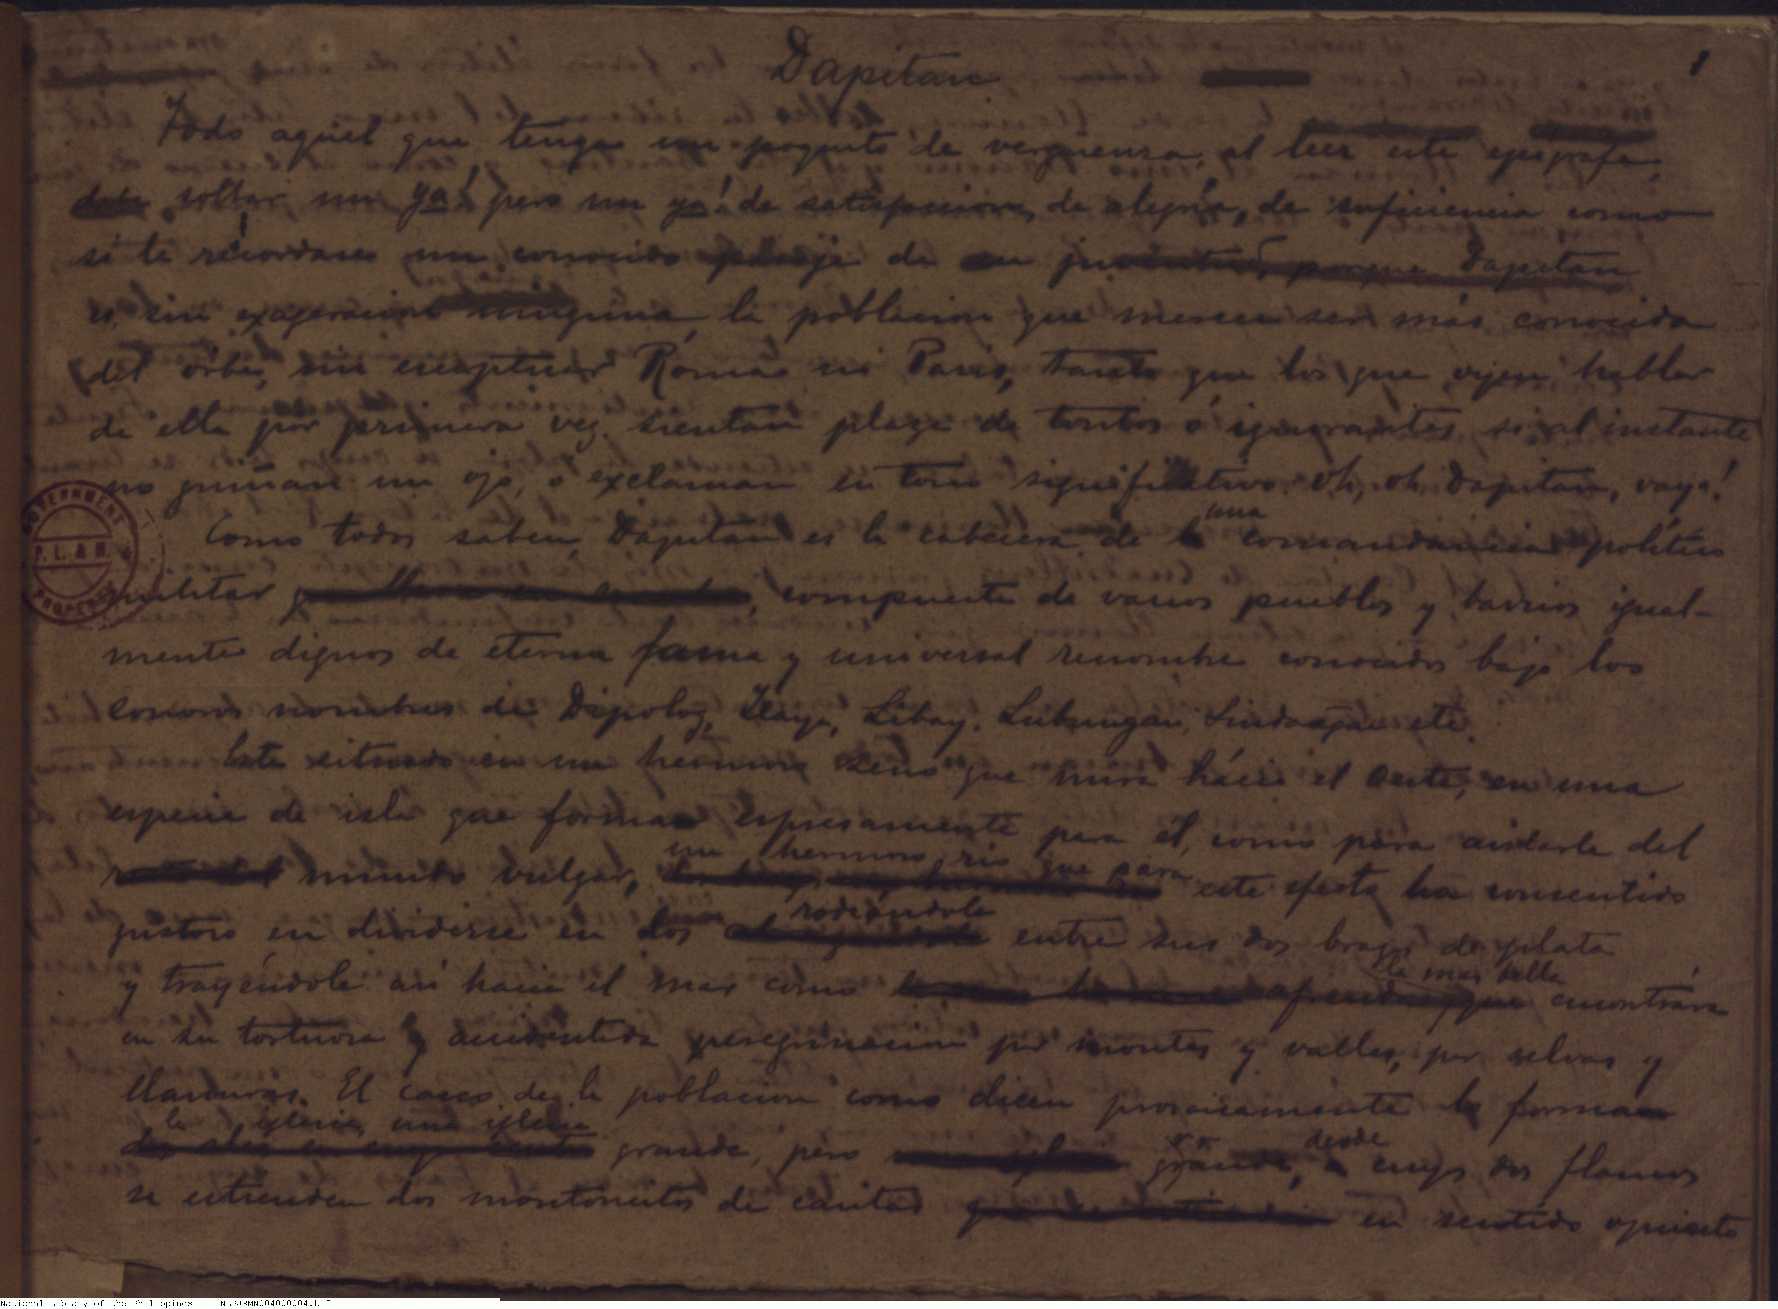 Dapitan
Todo aquel que tenga un poquito de vergüenza, al leer este epígrafe,
debe soltar un ya! pero un ya! de satisfaccion, de alegría, de suficiencia como
si le recordasen un conocido pasaje de su juventud, porque Dapitan
es, sin exageracion ninguna, la poblacion que merece ser más conocida
del orbe, sin exceptuar Roma ni Paris, tanto que los que oyen hablar
de ella por primera vez sientan plaza de tontos ó ignorantes si al instante
no guiñan un ojo, o exclaman en tono significativo: Oh, oh Dapitan, vaya!
Como todos saben, Dapitan es la cabecera de una comandancia político
militar, compuesta de varios pueblos y barrios igual-
mente dignos de eterna fama y universal renombre conocidos bajo los
sonoros nombres de Dipolog, Ilaya, Libay, Lubungan, etc.
Está situado en un hermoso seno que mira hácia el Oeste, en una
especie de isla que forma espresamente para él, como para aislarle del
mundo vulgar, un hermoso rio que para este efecto ha consentido
gustoso en dividirse en dos rodeándole entre sus dos brazos de plata
y trayéndole asi hacia el mar como la mas bella encontrára
en su tortuosa y accidentada peregrinacion por montes y valles, por selvas y
llanuras. El casco de la poblacion como dicen prosaicamente lo forma
la iglesia, una iglesia grande, pero grande, desde cuyos dos flancos
se estienden dos montoncitos de casitas en sentido opuesto
GOVERNMENT
P. L. & M.
PROPERTY
National Library of the Philippines